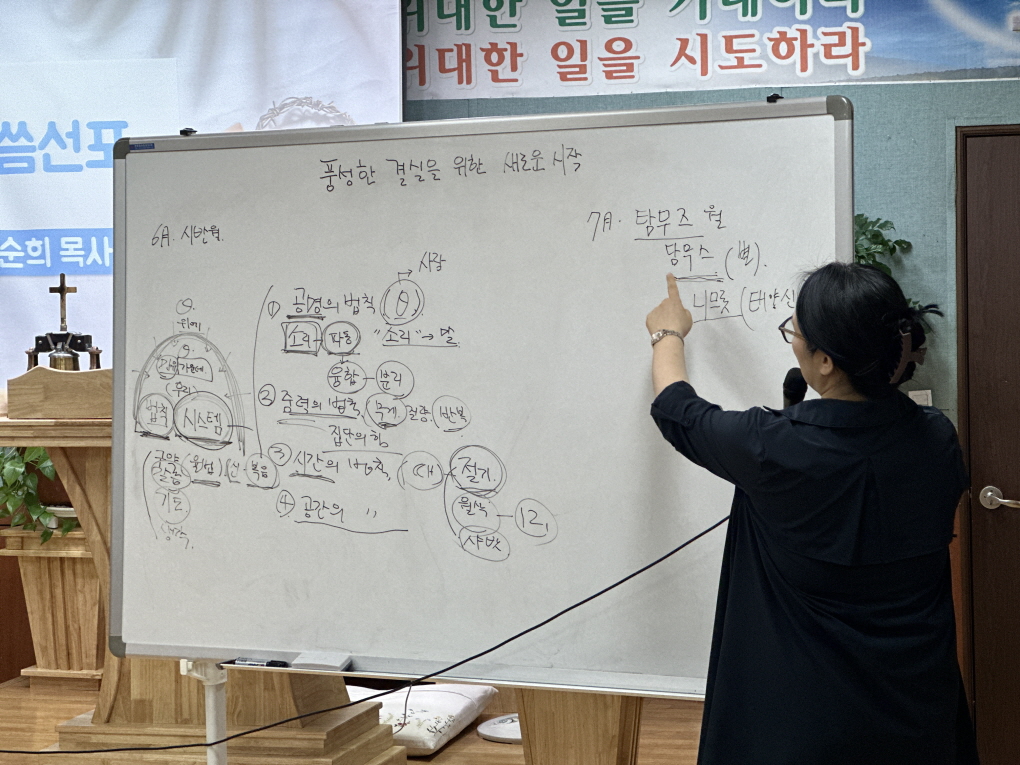 위대한 일을 기대하라
위대한 일을 시도하라
씀선포
순희 목사
풍성한 결실을 위한 새로운 시작
6月. 시반월.
7月. 탐무즈 월
담무스 (별).
니므롯 (태양신
시작
① 공명의 법칙
소리 - 파동 "소리" → 말
융합 - 분리
② 중력의 법칙, 무게, 질량, 반복
집단의 힘
③ 시간의 법칙, 때 절기
월삭 - 12,
샤밧
④ 공간의 〃
위에
우리
법칙 시스템
(율법) 복음
기도